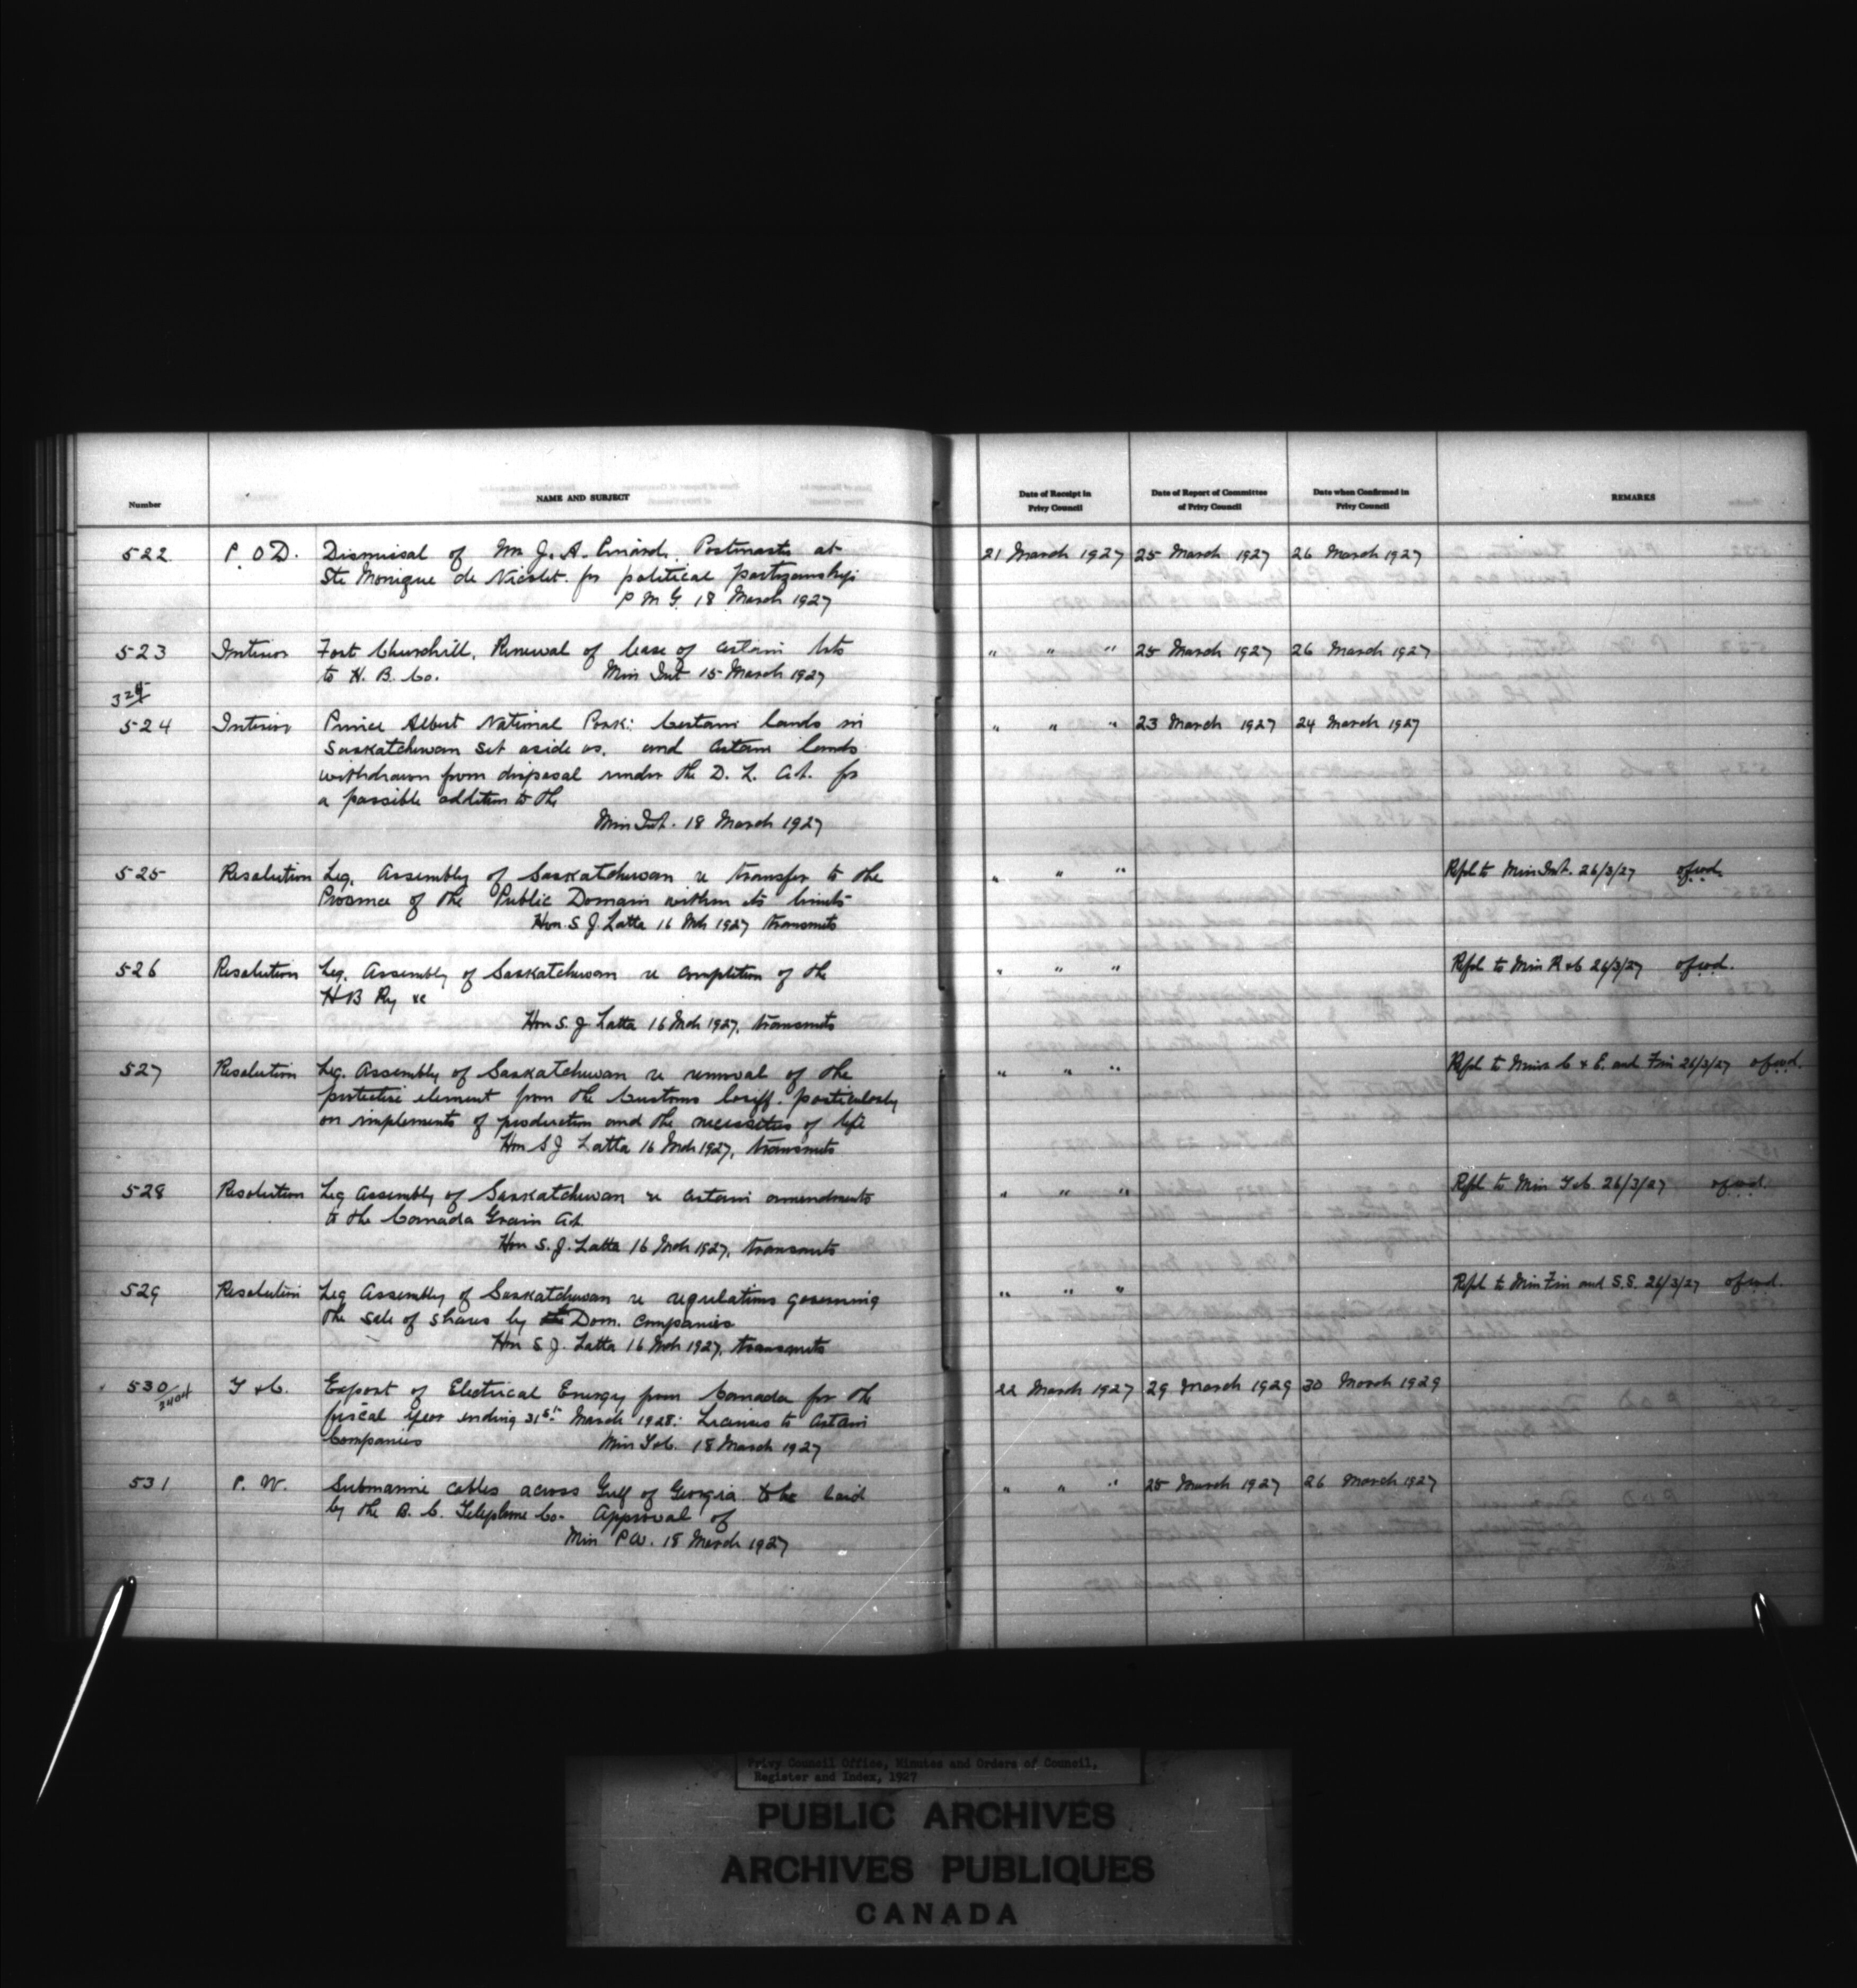 Number
NAME AND SUBJECT
Date of Receipt in Privy Council
Date of Report of Committee of Privy Council
Date when Confirmed in Privy Council
REMARKS
522 P.O.D. Dismissal of Mr J. A. Postmaster at 21 March 1927 25 March 1927 26 March 1927
Ste Monique de Nicolet for political partizanship
P M G. 18 March 1927
523 Interior Fort Churchill, Renewal of lease of certain lots " " " 25 March 1927 26 March 1927
to H. B. Co. Min Int 15 March 1927
524 Interior Prince Albert National Park: Certain lands in " " " 23 March 1927 24 March 1927
Saskatchewan set aside as, and certain lands
withdrawn from disposal under the D. L. Act. for
a possible addition to the
Min Int. 18 March 1927
525 Resolution Leg. Assembly of Saskatchewan re transfer to the " " " Refd to Min Int. 26/3/27
Province of the Public Domain within its limits
Hon. S J. Latta 16 Mch 1927 transmits
526 Resolution Leg. Assembly of Saskatchewan re completion of the " " " Refd to Min R & C 26/3/27
H B Ry &c
Hon S. J. Latta 16 Mch 1927, transmits
527 Resolution Leg. Assembly of Saskatchewan re removal of the " " " Refd to Mins C & E. and Fin 26/3/27
protective element from the Customs tariff. particularly
on implements of production and the necessities of life
Hon S J Latta 16 Mch 1927, transmits
528 Resolution Leg Assembly of Saskatchewan re certain amendments " " " Refd to Min T & C. 26/3/27
to the Canada Grain Act.
Hon S. J. Latta 16 Mch 1927, transmits
529 Resolution Leg Assembly of Saskatchewan re regulations governing " " " Refd to Min Fin and S.S. 26/3/27
the sale of shares by Dom. Companies
Hon S. J. Latta 16 Mch 1927, transmits
530 T & C. Export of Electrical Energy from Canada for the 22 March 1927 29 March 1929 30 March 1929
fiscal year ending 31st March 1928: Licenses to certain
Companies Min T & C. 18 March 1927
531 P. W. Submarine cables across Gulf of Georgia to be laid " " " 25 March 1927 26 March 1927
by the B. C. Telephone Co. Approval of
Min P W. 18 March 1927
Privy Council Office, Minutes and Orders of Council,
Register and Index, 1927
PUBLIC ARCHIVES
ARCHIVES PUBLIQUES
CANADA